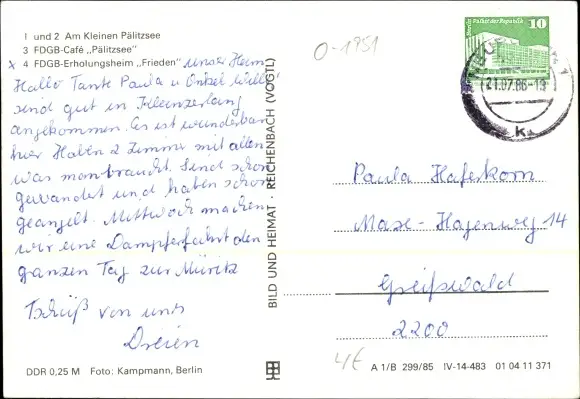 1 und 2 Am Kleinen Pälitzsee
3 FDGB-Café „Pälitzsee"
x 4 FDGB-Erholungsheim „Frieden" unser Heim
Hallo Tante Paula u Onkel Willi
sind gut in Kleinzerlang
angekommen. Es ist wunderbar
hier Haben 2 Zimmer mit allen
was man braucht. Sind schon
gewandert und haben schon
geangelt. Mittwoch machen
wir eine Dampferfahrt den
ganzen Tag zur Müritz
Tschüß von uns
Dreien
DDR 0,25 M Foto: Kampmann, Berlin
BILD UND HEIMAT · REICHENBACH (VOGTL)
O-1951
Berlin Palast der Republik 10
21.07.86-19
k
Paula Haferkorn
Max-Hagenweg 14
Greifswald
2200
4€
A 1/B 299/85 IV-14-483 01 04 11 371